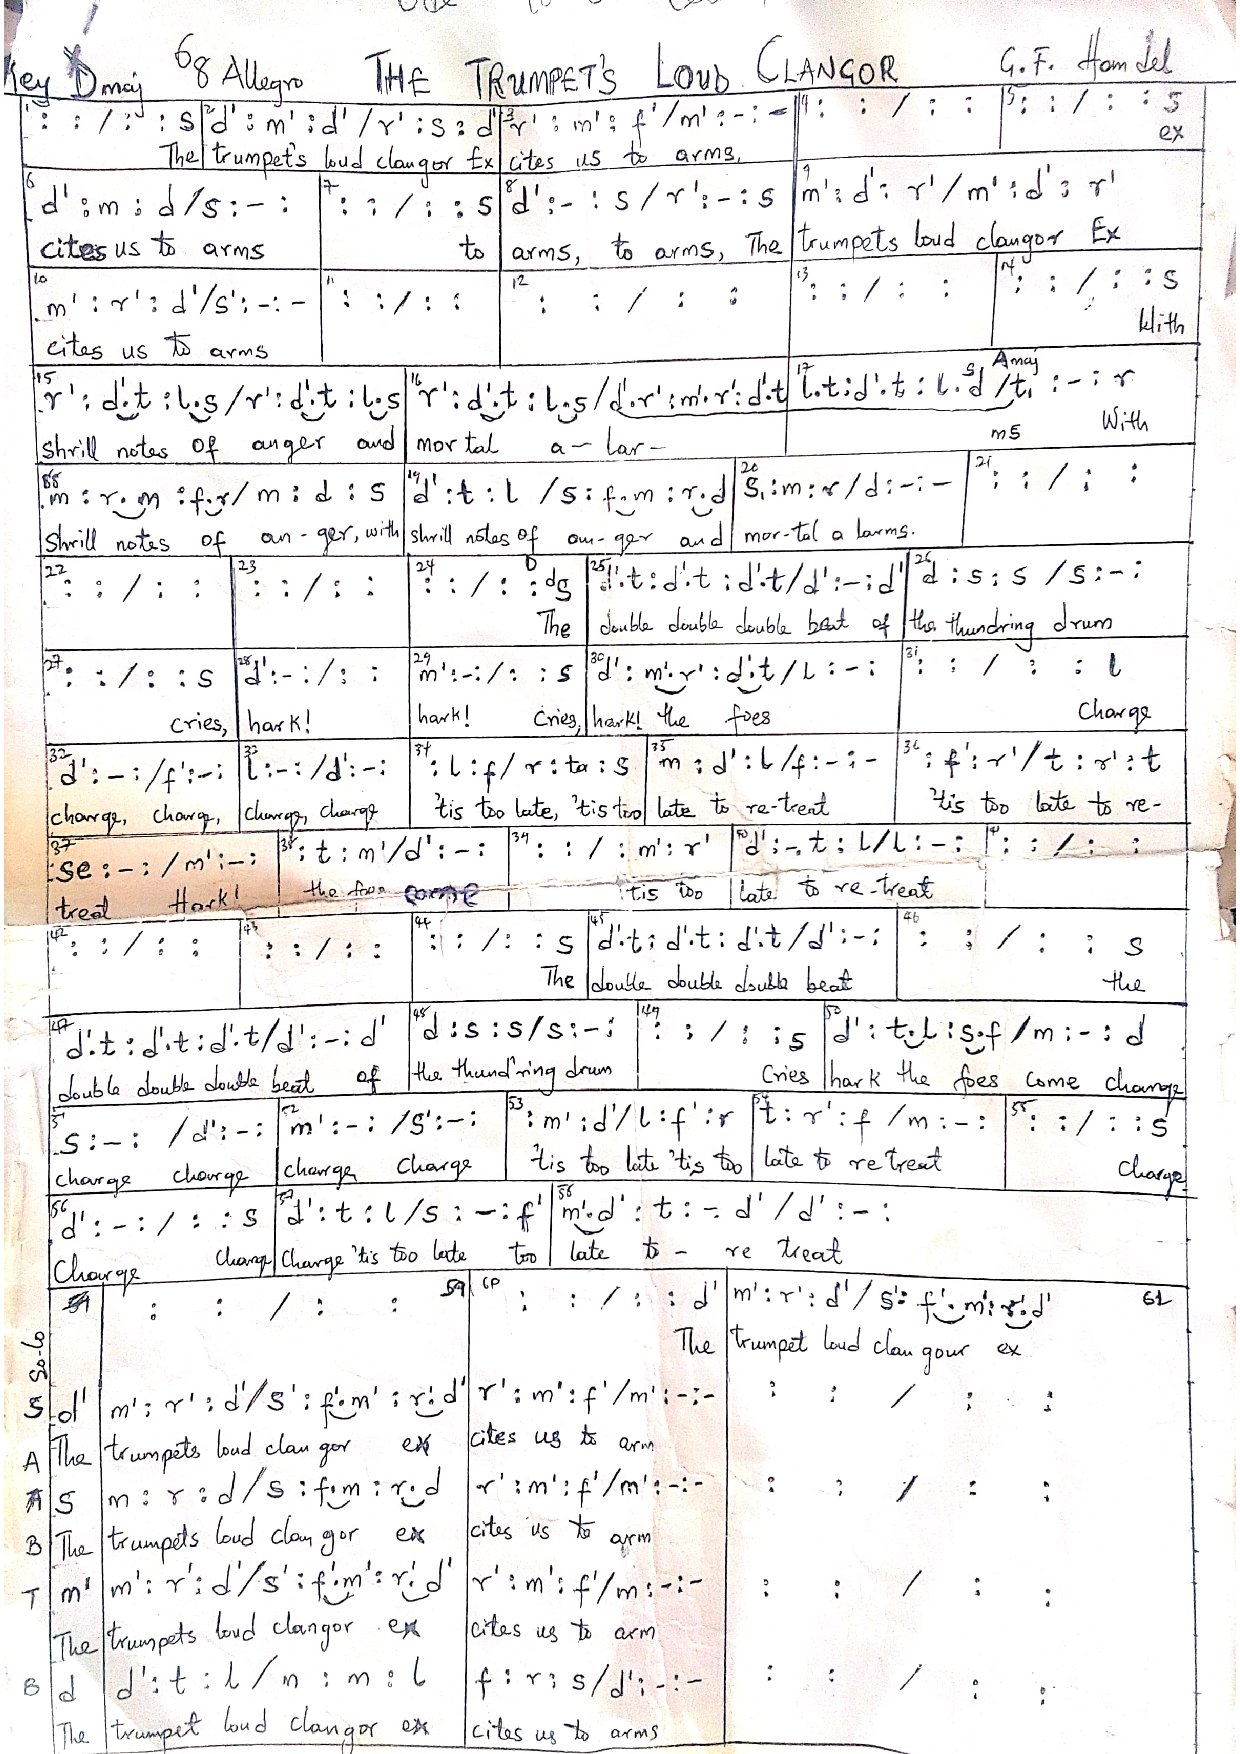 Key Dmaj 68 Allegro THE TRUMPET'S LOUD CLANGOR G.F. Handel
1 : : / : : s 2 d' : m' : d' / r' : s : d' 3 r' : m' : f' / m' : - : - 4 : : / : : 5 : : / : : s
The trumpet's loud clangor Ex cites us to arms, ex
6 d' : m : d / s : - : 7 : : / : : s 8 d' : - : s / r' : - : s 9 m' : d' : r' / m' : d' : r'
cites us to arms to arms, to arms, The trumpets loud clangor Ex
10 m' : r' : d' / s' : - : - 11 : : / : : 12 : : / : : 13 : : / : : 14 : : / : : s
cites us to arms With
Amaj
15 r' : d'.t : l.s / r' : d'.t : l.s 16 r' : d'.t : l.s / d'.r' : m'.r' : d'.t 17 l.t : d'.t : l.sd / t, : - : r
shrill notes of anger and mor tal a - lar - ms With
m : r.m : f.r / m : d : s 19 d' : t : l / s : f.m : r.d 20 s, : m : r / d : - : - 21 : : / : :
shrill notes of an - ger, with shrill notes of an - ger and mor-tal a larms.
22 : : / : : 23 : : / : : 24 : : / : : D ds 25 d'.t : d'.t : d'.t / d' : - : d' 26 d : s : s / s : - :
The double double double beat of the thundring drum
27 : : / : : s 28 d' : - : / : : 29 m' : - : / : : s 30 d' : m'.r' : d'.t / l : - : 31 : : / : : l
cries, hark! hark! cries, hark! the foes Charge
32 d' : - : / f' : - : 33 l : - : / d' : - : 34 : l : f / r : ta : s 35 m : d' : l / f : - : - 36 : f' : r' / t : r' : t
charge, charge, charge, charge 'tis too late, 'tis too late to re-treat 'tis too late to re-
37 : se : - : / m' : - : 38 : t : m' / d' : - : 39 : : / : m' : r' 40 d' : -.t : l / l : - : 41 : : / : :
treat Hark! the foes come 'tis too late to re-treat
42 : : / : : 43 : : / : : 44 : : / : : s 45 d'.t : d'.t : d'.t / d' : - : 46 : : / : : s
The double double double beat the
47 d'.t : d'.t : d'.t / d' : - : d' 48 d : s : s / s : - : 49 : : / : : s 50 d' : t.l : s.f / m : - : d
double double double beat of the thund'ring drum Cries hark the foes come charge
51 s : - : / d' : - : 52 m' : - : / s' : - : 53 : m' : d' / l : f' : r 54 t : r' : f / m : - : 55 : : / : : s
charge charge charge, Charge 'tis too late 'tis too late to re treat Charge
56 d' : - : / : : s 57 d' : t : l / s : - : f' 58 m'.d' : t : -. d' / d' : - :
Charge Charge Charge 'tis too late too late to - re treat
: : / : : 59 60 : : / : : d' m' : r' : d' / s' : f'.m' : r'.d' 61
So-lo The trumpet loud clan gour ex
S d' m' : r' : d' / s' : f'.m' : r'.d' r' : m' : f' / m' : - : - : : / : :
The trumpets loud clan gor ex cites us to arm
A s m : r : d / s : f.m : r.d r' : m' : f' / m' : - : - : : / : :
B The trumpets loud clan gor ex cites us to arm
T m' m' : r' : d' / s' : f'.m' : r'.d' r' : m' : f' / m : - : - : : / : :
The trumpets loud clangor ex cites us to arm
B d d' : t : l / m : m : l f : r : s / d' : - : - : : / : :
The trumpet loud clangor ex cites us to arms